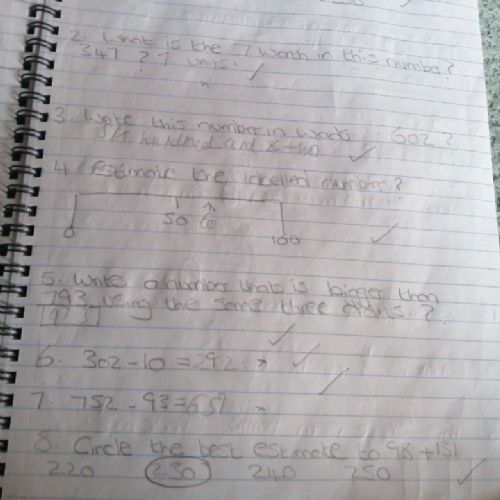 2. What is the 7 worth in this number?
347 ? 7 units.
3 Write this number in words : 602 ?
Six hundred and
4 Estimate the labelled numbers?
50 60
0 100
5. Write a number that is bigger than
793 using the same three digits ?
973
6. 302 - 10 = 292
7. 752 - 93 = 659
8. Circle the best estimate to 98 + 131
220 230 240 250